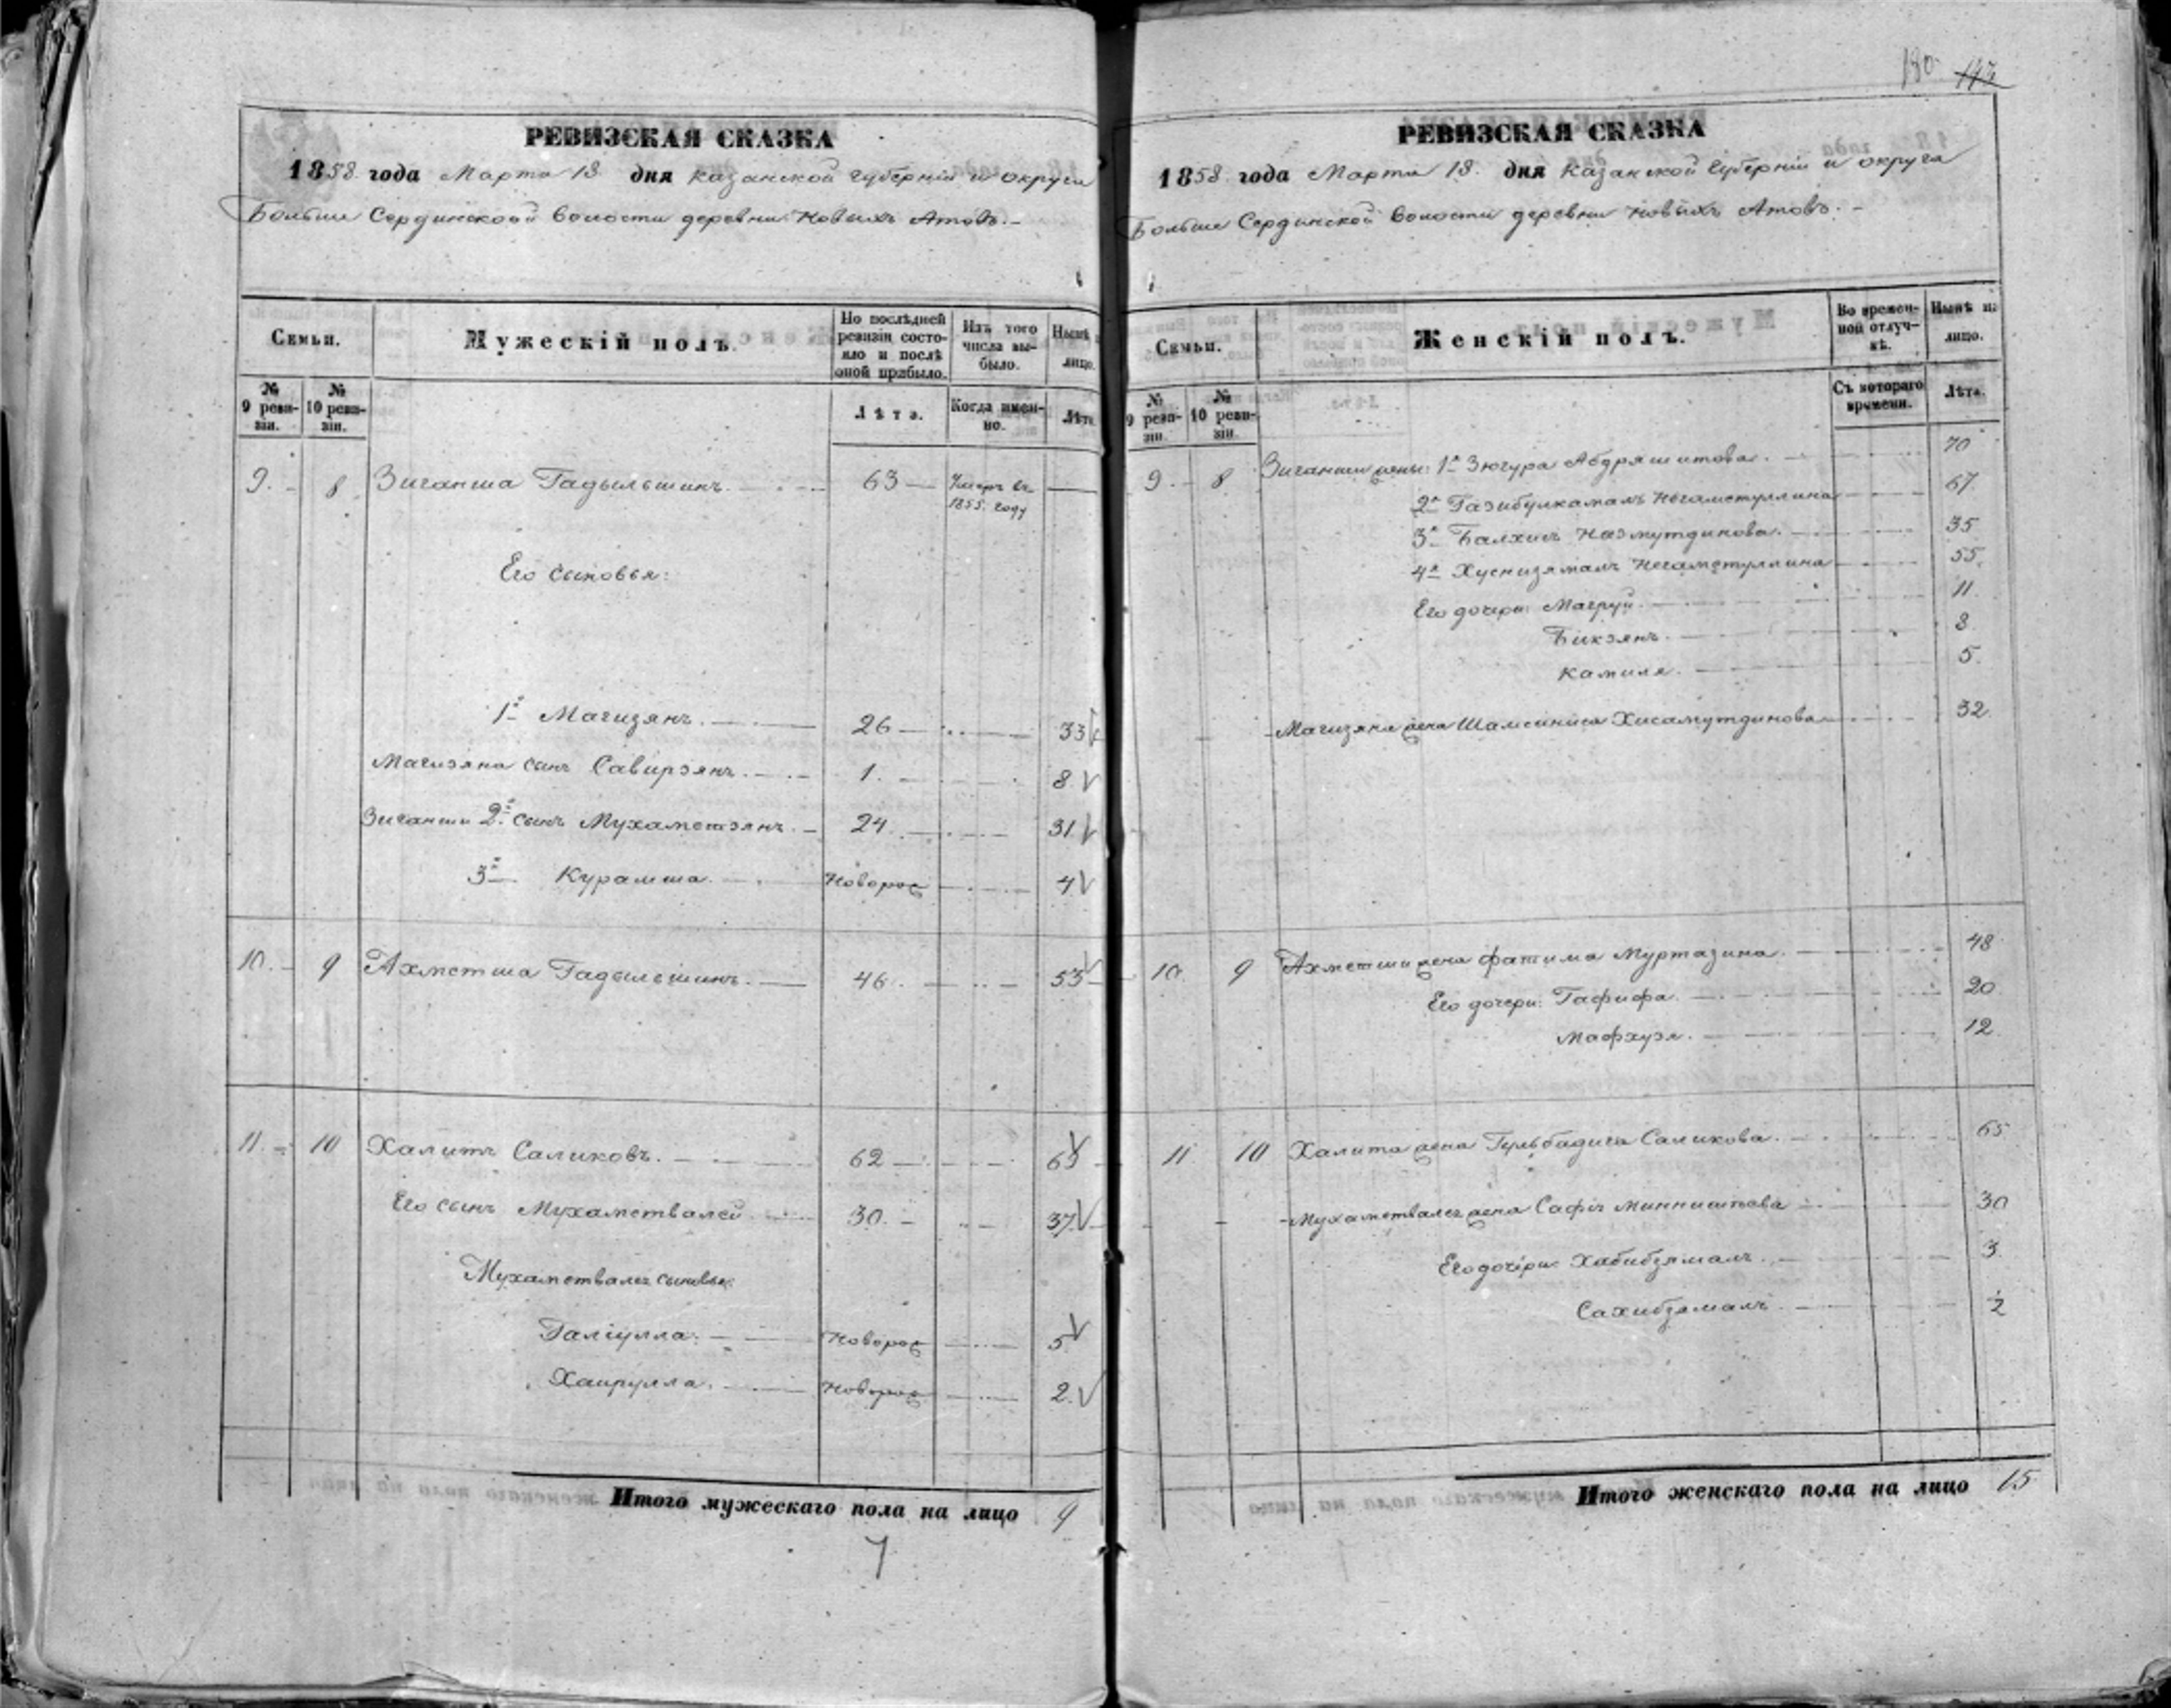 180 143
РЕВИЗСКАЯ СКАЗКА
1858 года Марта 13 дня Казанской губернiи и округа
Больше Сердинской волости деревни Новыхъ Атовъ.
Семьи.
Мужескiй полъ.
По послѣдней ревизiи состояло и послѣ оной прибыло.
Изъ того числа выбыло.
Нынѣ на лицо.
№ 9 ревизiи.
№ 10 ревизiи.
Лѣта.
Когда именно.
Лѣта
9. 8 Зиганша Гадыльшинъ. 63 1855 году
Его сыновья:
1й Магизянъ. 26 33
Магизяна сынъ Сабирзянъ. 1. 8
Зиганши 2й сынъ Мухаметзянъ. 24 31
3й Курамша. Новорож 4
10. 9 Ахметша Гадыльшинъ. 46 53
11. 10 Халитъ Саликовъ. 62 69
Его сынъ Мухаметвалей 30. 37
Мухаметвалея сыновья:
Галiулла. Новорож 5
Хаирулла. Новорож 2.
Итого мужескаго пола на лицо 9
7
РЕВИЗСКАЯ СКАЗКА
1858 года Марта 13. дня Казанской губернiи и округа
Больше Сердинской волости деревни Новыхъ Атовъ.
Семьи.
Женскiй полъ.
Во временной отлучкѣ.
Нынѣ на лицо.
№ 9 ревизiи
№ 10 ревизiи.
Съ котораго времени.
Лѣта.
9 8 Зиганши жены: 1я Зюгура Абдряшитова. 70
2я Газибулкамалъ Негаметуллина 67
3я Балхисъ Назмутдинова. 35
4я Хуснизямалъ Негаметуллина 55.
Его дочери: Магруй. 11.
Бикзянъ. 8
Камиля. 5.
Магизяна жена Шамсиниса Хисамутдинова 32
10. 9 Ахметши жена Фатима Муртазина. 48
Его дочери: Гафифа. 20
Мафхузя. 12
11 10 Халита жена Гульбадига Саликова. 65
Мухаметвалея жена Сафiя 30
Его дочери: Хабибзямалъ. 3
Сахибзямалъ.
Итого женскаго пола на лицо 15